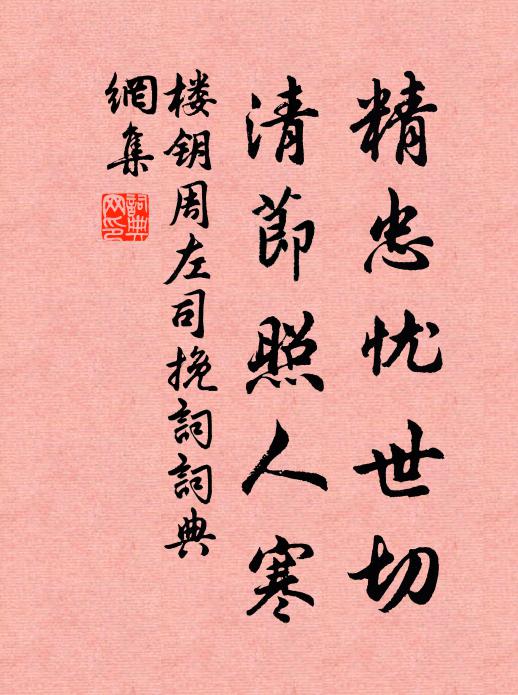 精忠忧世切
清節照人寒
楼钥周左司挽詞詞典
網集
詞典网印